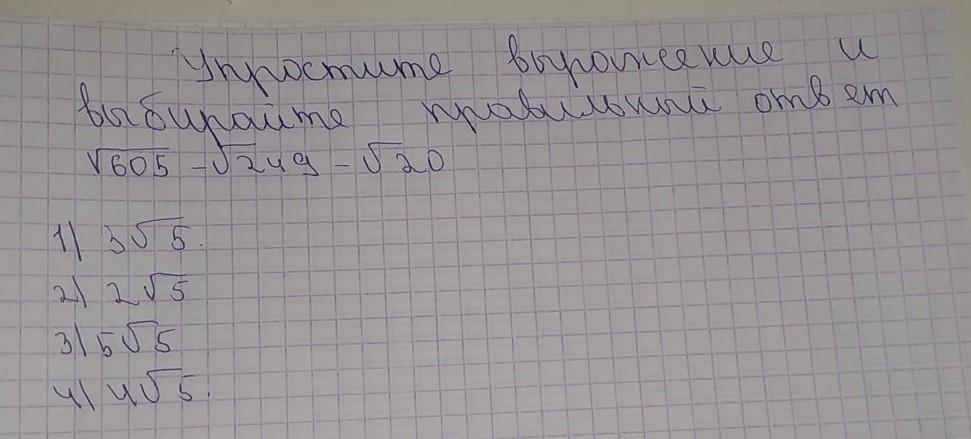 Упростите выражение и
выбирайте правильный ответ
√605 - √249 - √20
1) 3√5.
2) 2√5
3) 5√5
4) 4√5.